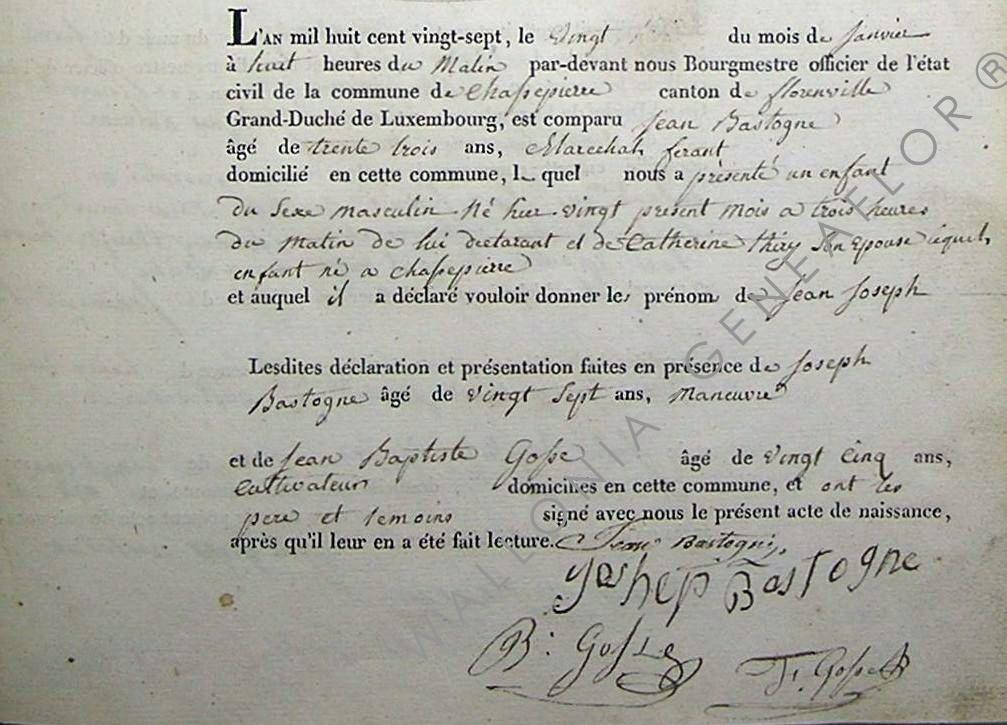 L'AN mil huit cent vingt-sept, le vingt du mois de Janvier
à huit heures du Matin par-devant nous Bourgmestre officier de l'état
civil de la commune de Chassepierre canton de florenville
Grand-Duché de Luxembourg, est comparu Jean Bastogne
âgé de trente trois ans, Marechal ferant
domicilié en cette commune, le quel nous a présenté un enfant
du Sexe masculin Né hier vingt present mois a trois heures
du Matin de lui declarant et de Catherine thiry Son Epouse lequel
enfant né a chassepierre
et auquel il a déclaré vouloir donner les prénom de Jean Joseph
Lesdites déclaration et présentation faites en présence de Joseph
Bastogne âgé de vingt Sept ans, Maneuvre
et de Jean Baptiste Gosse âgé de vingt Cinq ans,
Cultivateur domiciliés en cette commune, et ont les
pere et temoins signé avec nous le présent acte de naissance,
après qu'il leur en a été fait lecture. Jean Bastogne
Joshep Bastogne
B: Gosse
J. Gosse
WALLONIA GENEAELOR ®